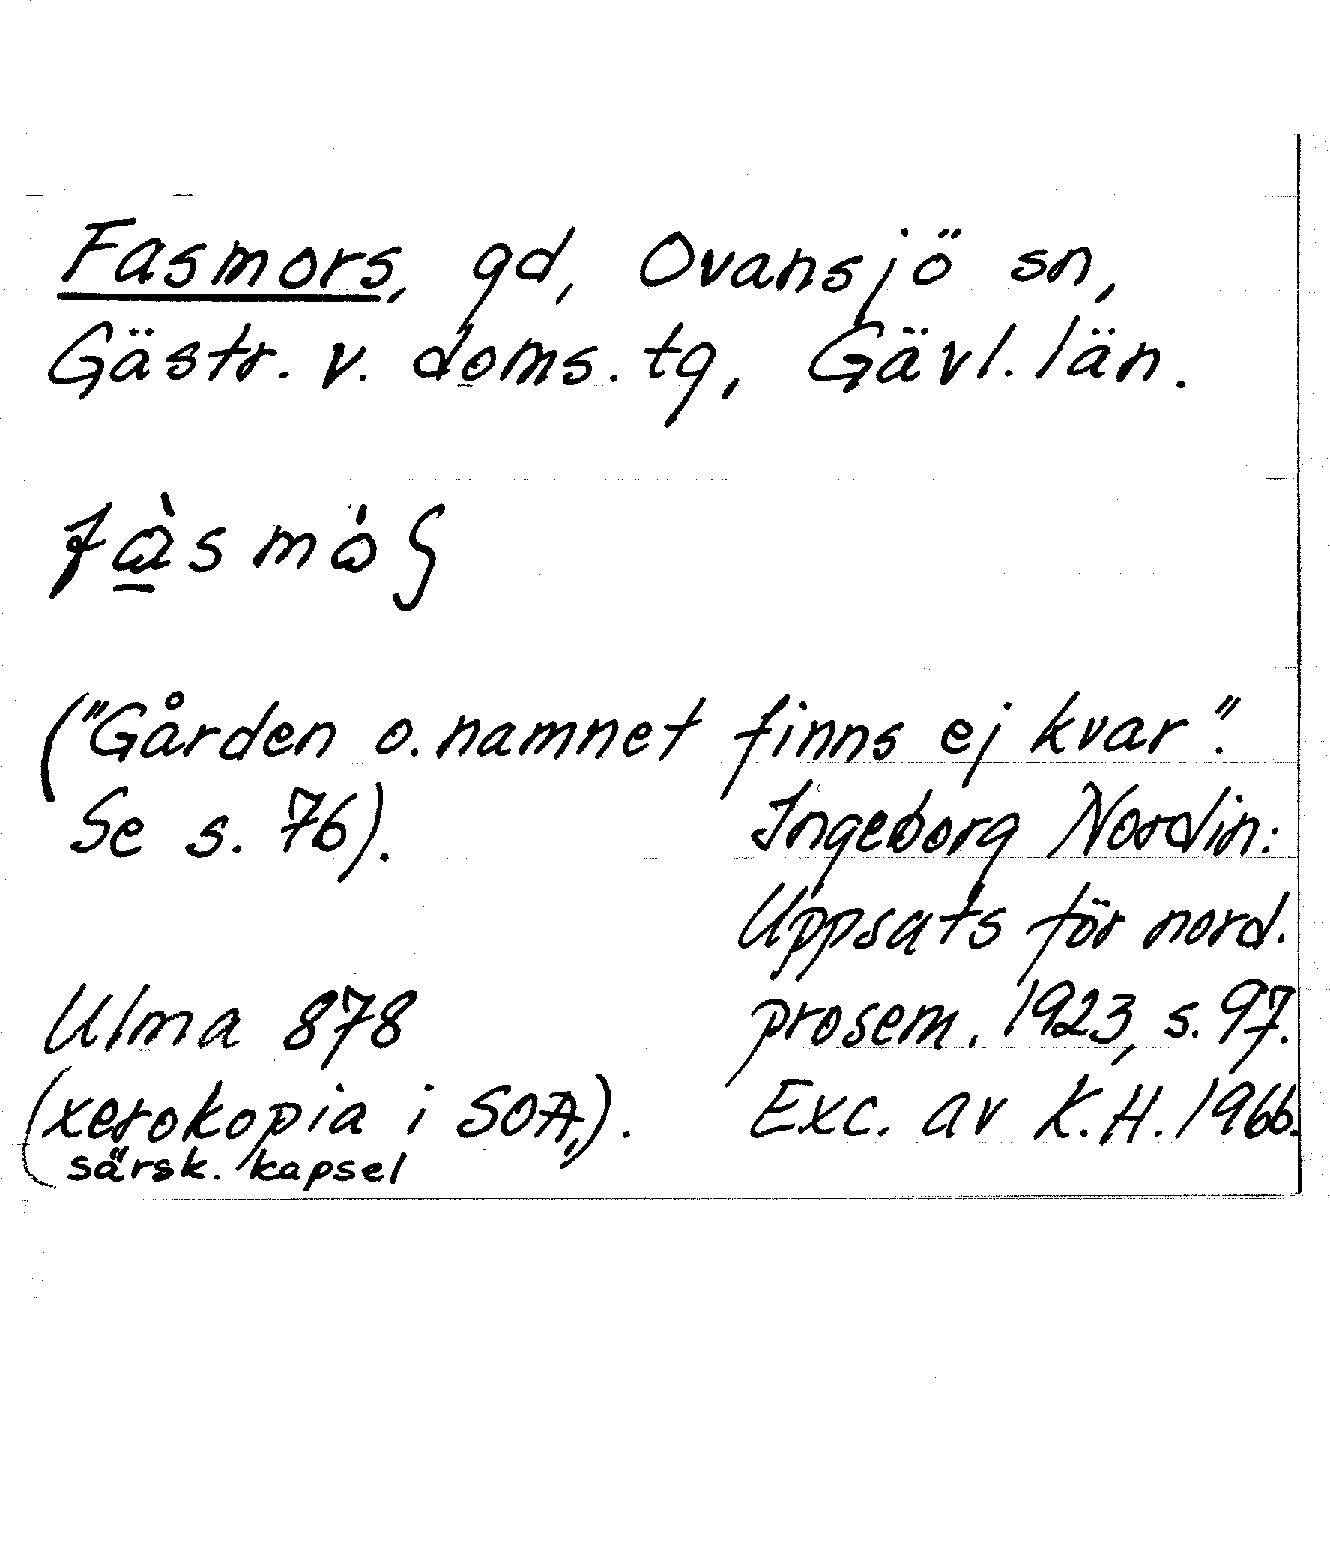 Fasmors, gd, Ovansjö sn,
Gästr. v. doms. tg, Gävl. län.
("Gården o. namnet finns ej kvar".
Se s. 76).
Ingeborg Nordin:
Uppsats för nord.
prosem. 1923, s. 97.
Exc. av K.H. 1966.
Ulma 878
(xerokopia i SOA,).
särsk. kapsel